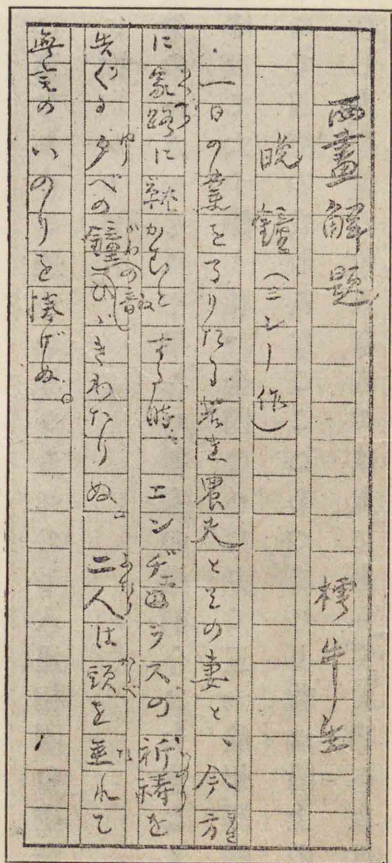 西畫解題　樗牛生
晩鐘（ミレー作）
一日の業を了りたる若き農夫とその妻と、今方
に家路に歸かむとする時、エンヂエラスの祈禱を
告ぐる夕べの鐘の音ひゞきわたりぬ。二人は頭を垂れて
無言のいのりを捧げぬ。